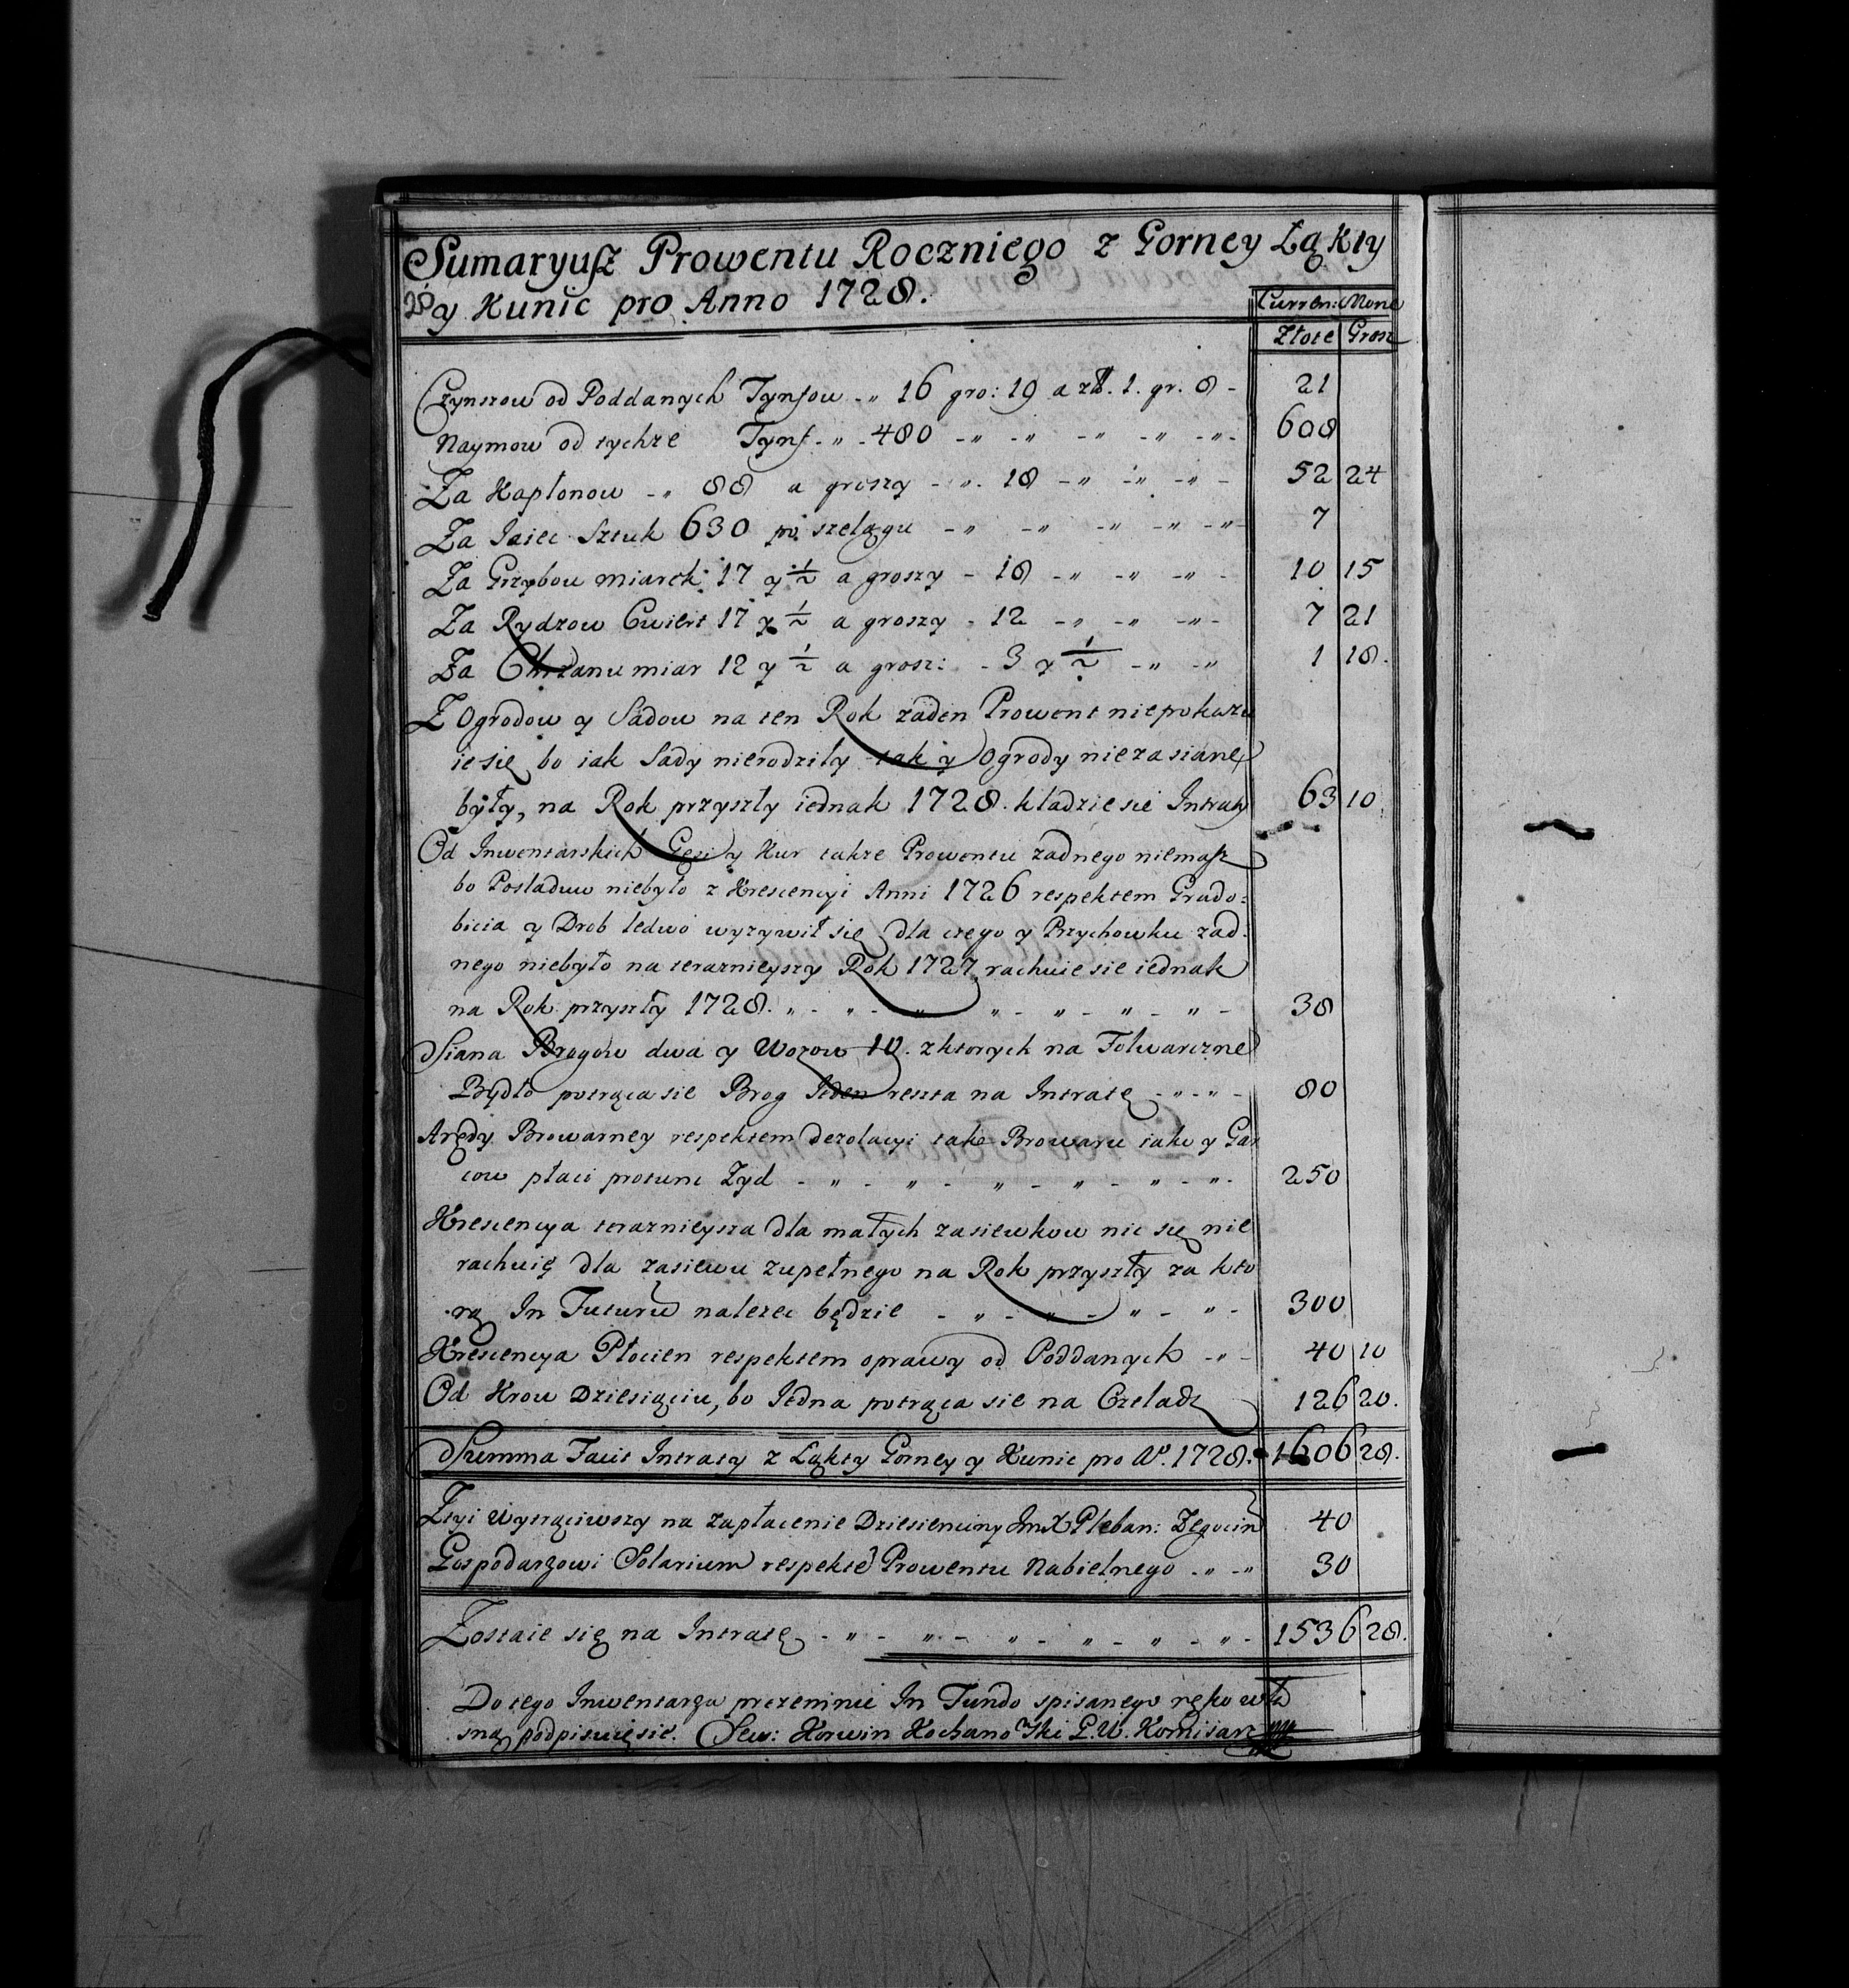 Sumaryusz Prowentu Roczniego z Gorney Łąkty
28 y Kunic pro Anno 1728.
Curren: Mone
Złote Grosz
Czynszow od Poddanych Tynfow -" 16 gro: 19 a zł. 1. gr. 8 - 21
Naymow od tychze Tynf. -" - 480 -" -" -" -" -" - 608
Za Kapłonow -" 88 a groszy -" - 18 -" -" -" - 52 24
Za Jaiec Sztuk 630 po szelągu -" -" -" -" -" - 7
Za Grzybow miarek 17 y ½ a groszy - 18 -" -" -" - 10 15
Za Rydzow Cwiert 17 y ½ a groszy - 12 -" -" -" - 7 21
Za Chrzanu miar 12 y ½ a grosz: - 3 y ½ -" -" 1 18.
Z Ogrodow y Sadow na ten Rok zaden Prowent niepokazu
ie się bo iak Sady nierodziły tak y Ogrody niezasiane
były, na Rok przyszły iednak 1728. kładzie sie Intraty 63 10
Od Inwentarskich Gęsi y Kur takze Prowentu zadnego niemasz
bo Posladuu niebyło z Krescencyi Anni 1726 respektem Grado=
bicia y Drob ledwo wyzywił się dla czego y Przychowku zad=
nego niebyło na terazniejszy Rok 1727 rachuie sie iednak
na Rok przyszły 1728. " - " - " - " - " - " - " - 38
Siana Brogow dwa y Wozow 10. z ktorych na Folwarczne
Bydło potrąca sie Brog Jeden reszta na Intratę -" -" - 80
Arędy Browarney respektem dezolacyi tak Browaru iako y Gar
cow płaci protunc Zyd - " - " - " - " - " - " - 250
Krescencya teraznieysza dla małych zasiewkow nic się nie
rachuię dla zasiewu zupełnego na Rok przyszły za kto
rą In Futuru nalezec będzie - " - " - " - " - 300
Krescencya Płocien respektem oprawy od Poddanych -" - 40 10
Od Krow Dziesiąciu, bo Jedna potrąca sie na Czeladz 126 20.
Summa Facit Intraty z Łąkty Gorney y Kunic pro Aº. 1728. 1606 28.
Z tyi Wytrąciwszy na zapłacenie Dziesieniny JmX Pleban: Zegocin 40
Gospodarzowi Solarium respekte Prowentu Nabielnego -" -" 30
Zostaie się na Intratę - " - " - " - " - " - " - 1536 28.
Do tego Inwentarza przezeninie In Fundo spisanego ręką wła
sną podpisuię sie. Sew: Korwin Kochanowski G. W. Komisarz